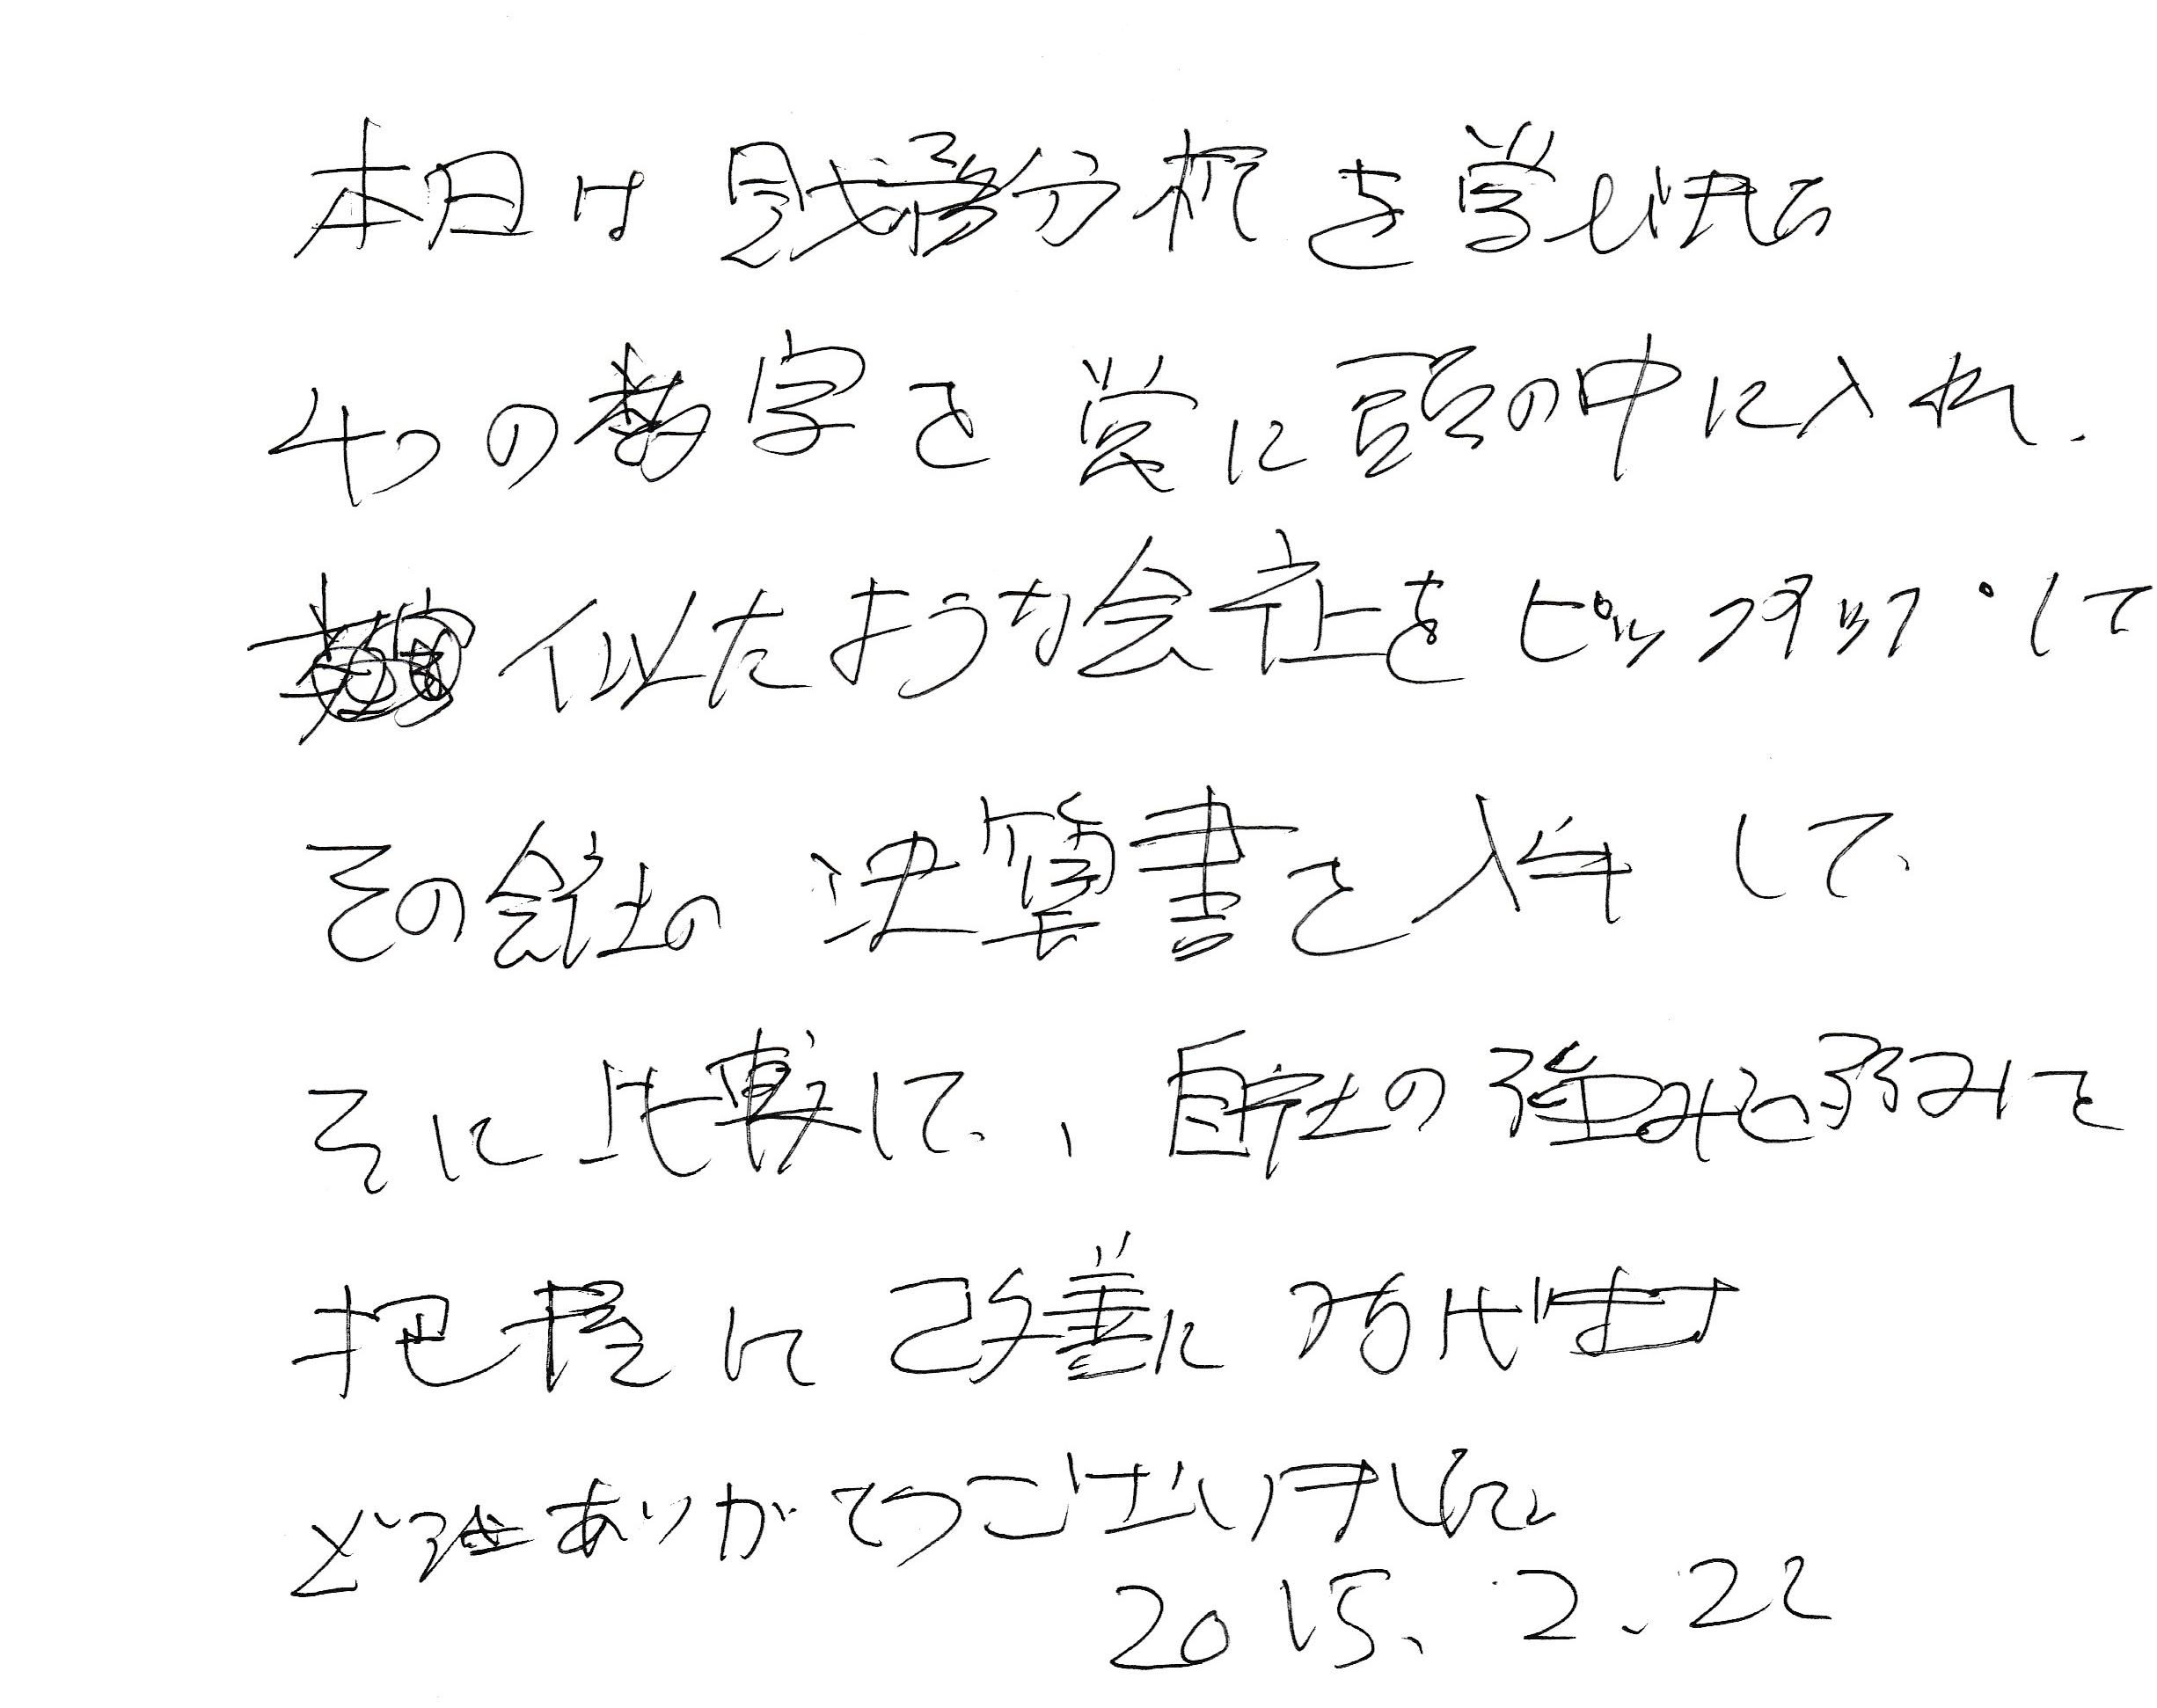 本日は財務分析を学ばれる
4つの数字を常に頭の中に入れ、
似たような会社をピックアップして
その会社の決算書を入手して、
そに比較して、自社の強みと弱みを
把握に改善に
ありがとうございました
2015、2、22